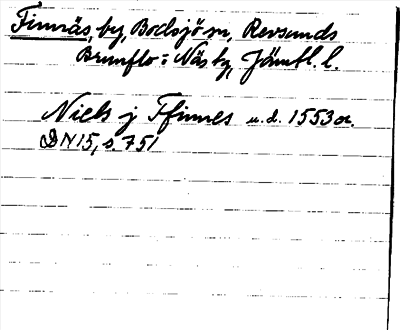 Finnäs, by, Bodsjö sn, Revsunds
Brunflo= Näs tg, Jämtl. l.
Niels j Ffinnes u.d. 1553 or.
DN 15, s. 751